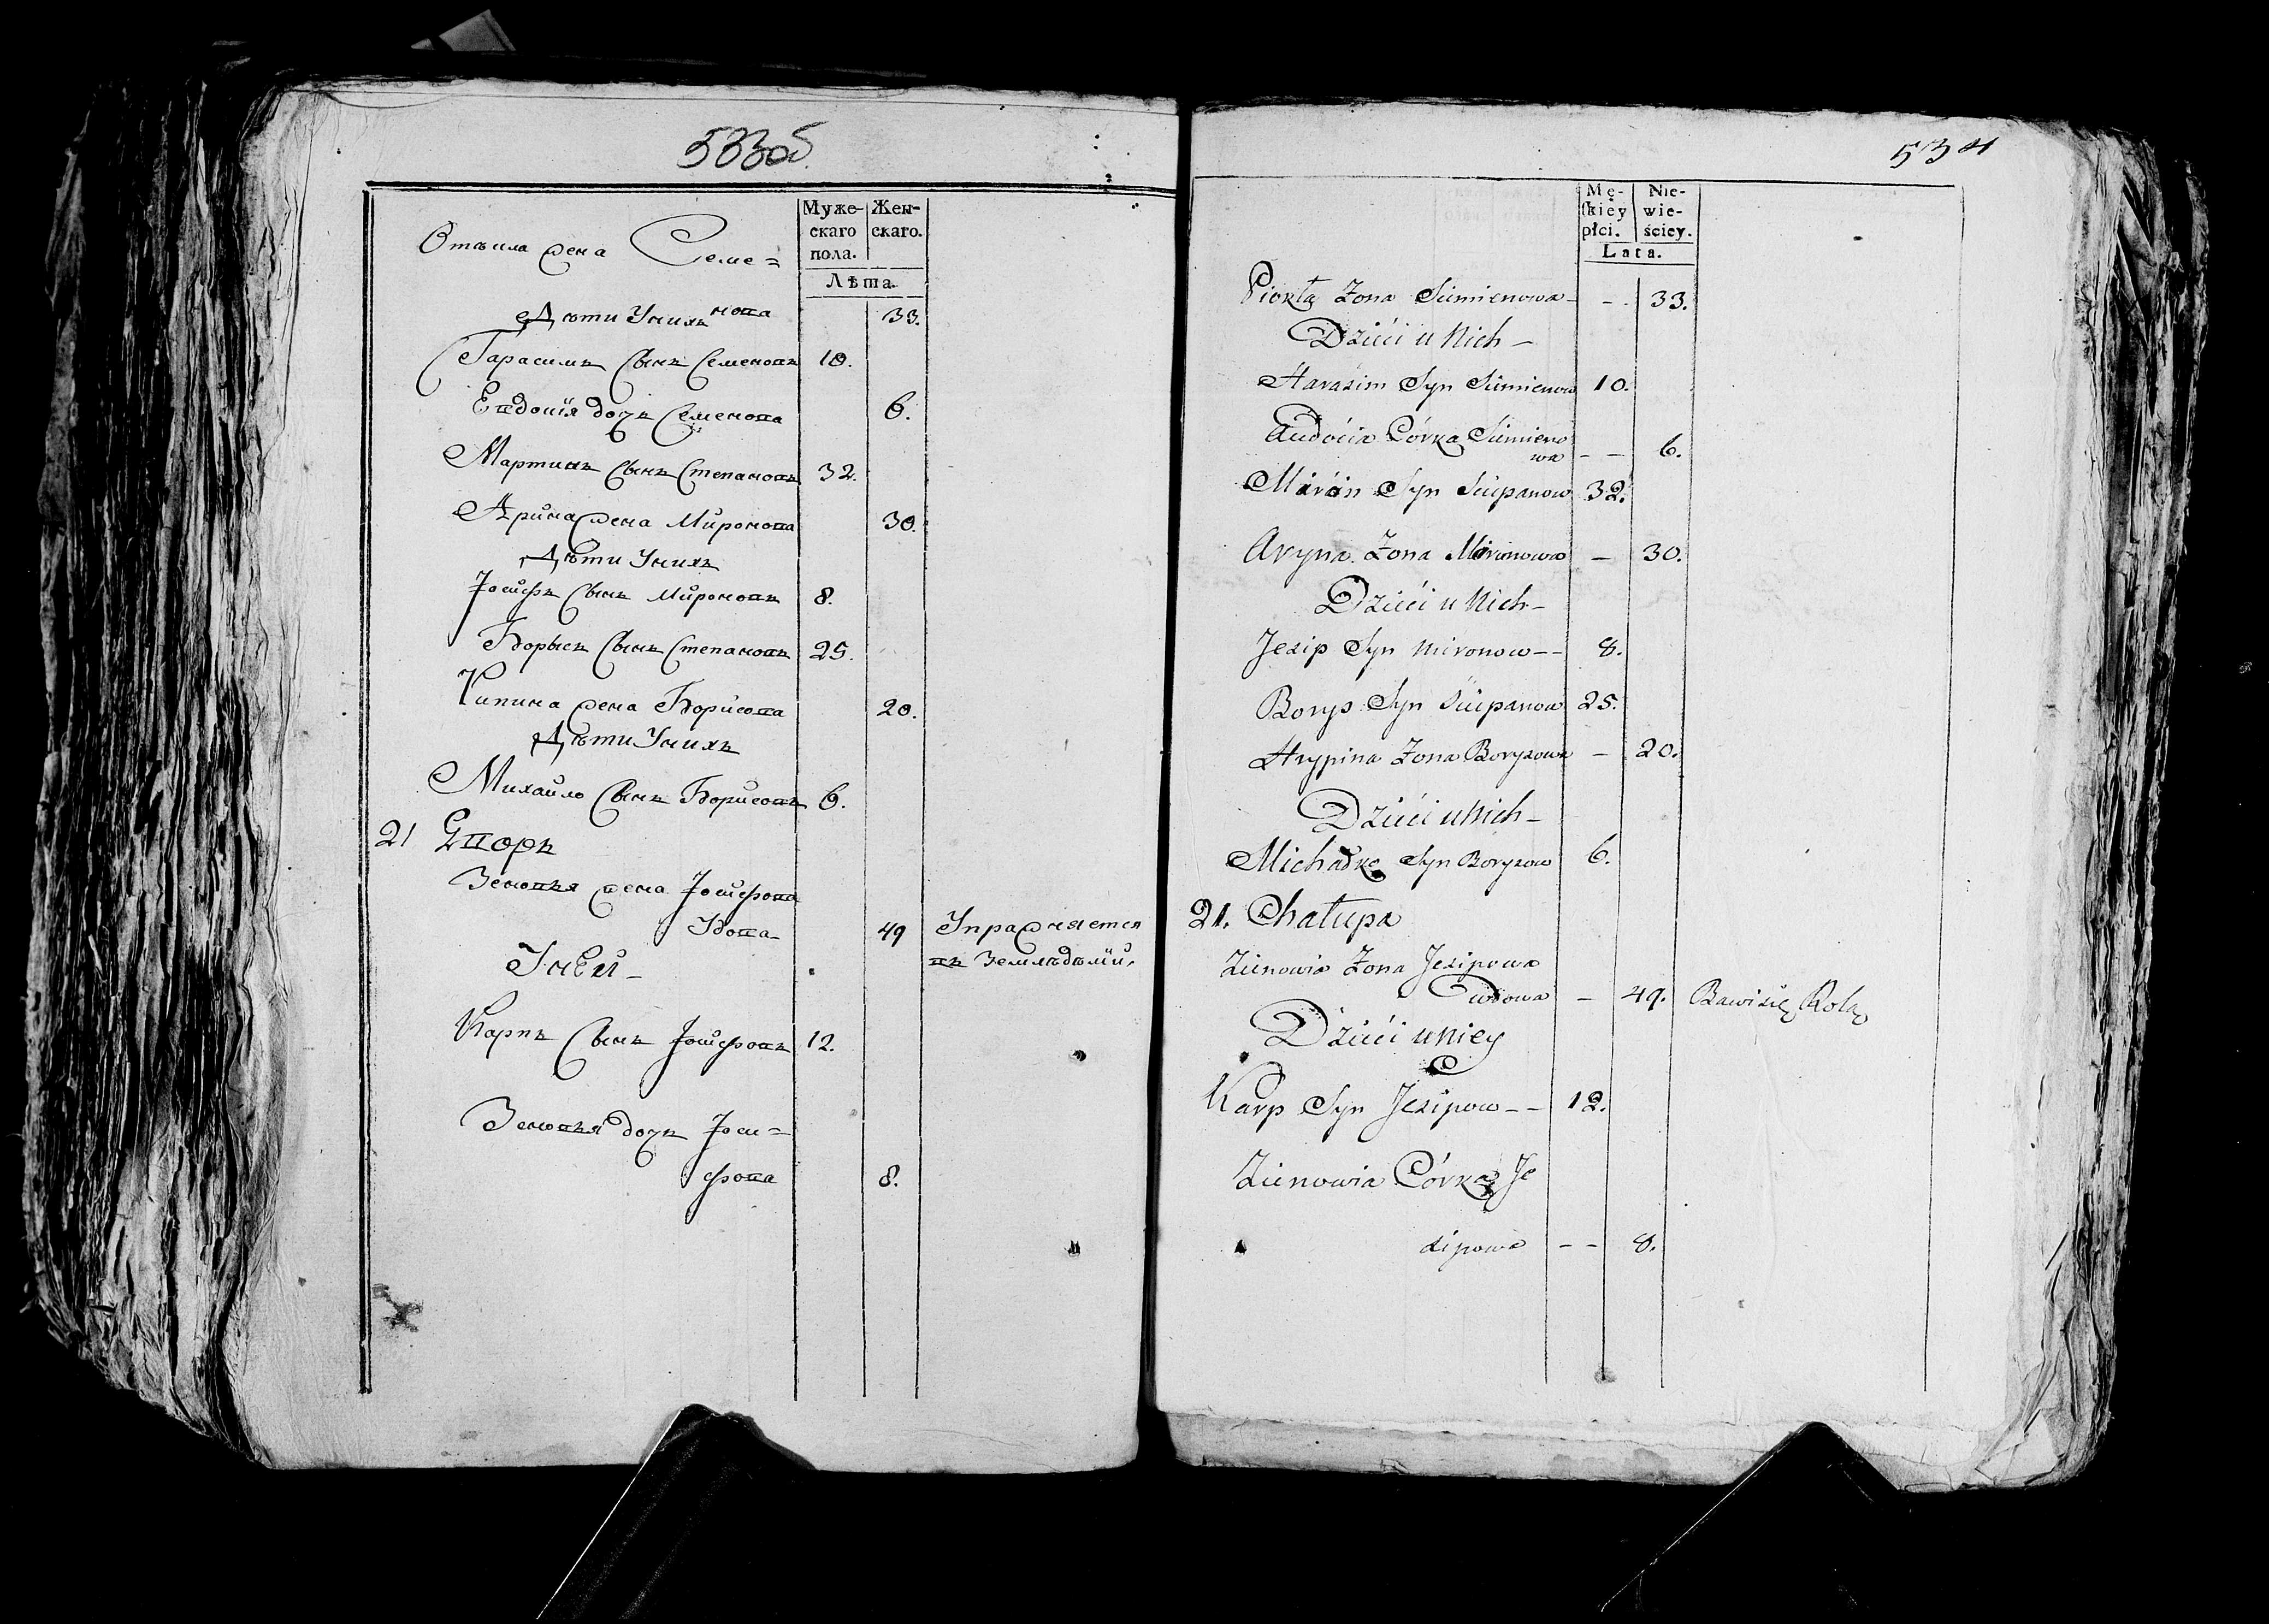 533об
Муже-
скаго
пола.
Жен-
скаго.
Лѣта.
жена Семе=
нова 33.
Дѣти Унихъ
Гарасимъ Сынъ Семеновъ 10.
Евдокія дочъ Семенова 6.
Мартинъ Сынъ Степановъ 32.
Арина жена Миронова 30.
Дѣти Унихъ
Іосифъ Сынъ Мироновъ 8.
Борысъ Сынъ Степановъ 25.
жена Борисова 20.
Дѣти Унихъ
Михайло Сынъ Борисовъ 6.
21 Дворъ
Зеновья жена Іосифова
Вдова 49 Упражняется
въ Земледѣлии,
У ней
Карпъ Сынъ Іосифовъ 12.
Зеновья дочъ Іоси=
фова 8.
534
Mę-
ſkiey
płci.
Nie-
wie-
ściey.
Lata.
Żona Simienowa - - 33.
Dzieci u Nich -
Harasim Syn Simienow 10.
Audocia Córka Simieno
wa - - 6.
Miron Syn Sciepanow 32.
Aryna Żona Mironowa - 30.
Dzieci u Nich -
Jezip Syn Mironow - - 8.
Borys Syn Sciepanow 25.
Hrypina Żona Borysowa - 20.
Dzieci u Nich -
Michałko Syn Borysow 6.
21. Chałupa
Zienowia Żona Jezipowa
Wdowa - 49. Bawi się Rolą
Dzieci u Niey
Karp Syn Jezipow - - 12.
Zienowia Córka Je
zipowa - - 8.